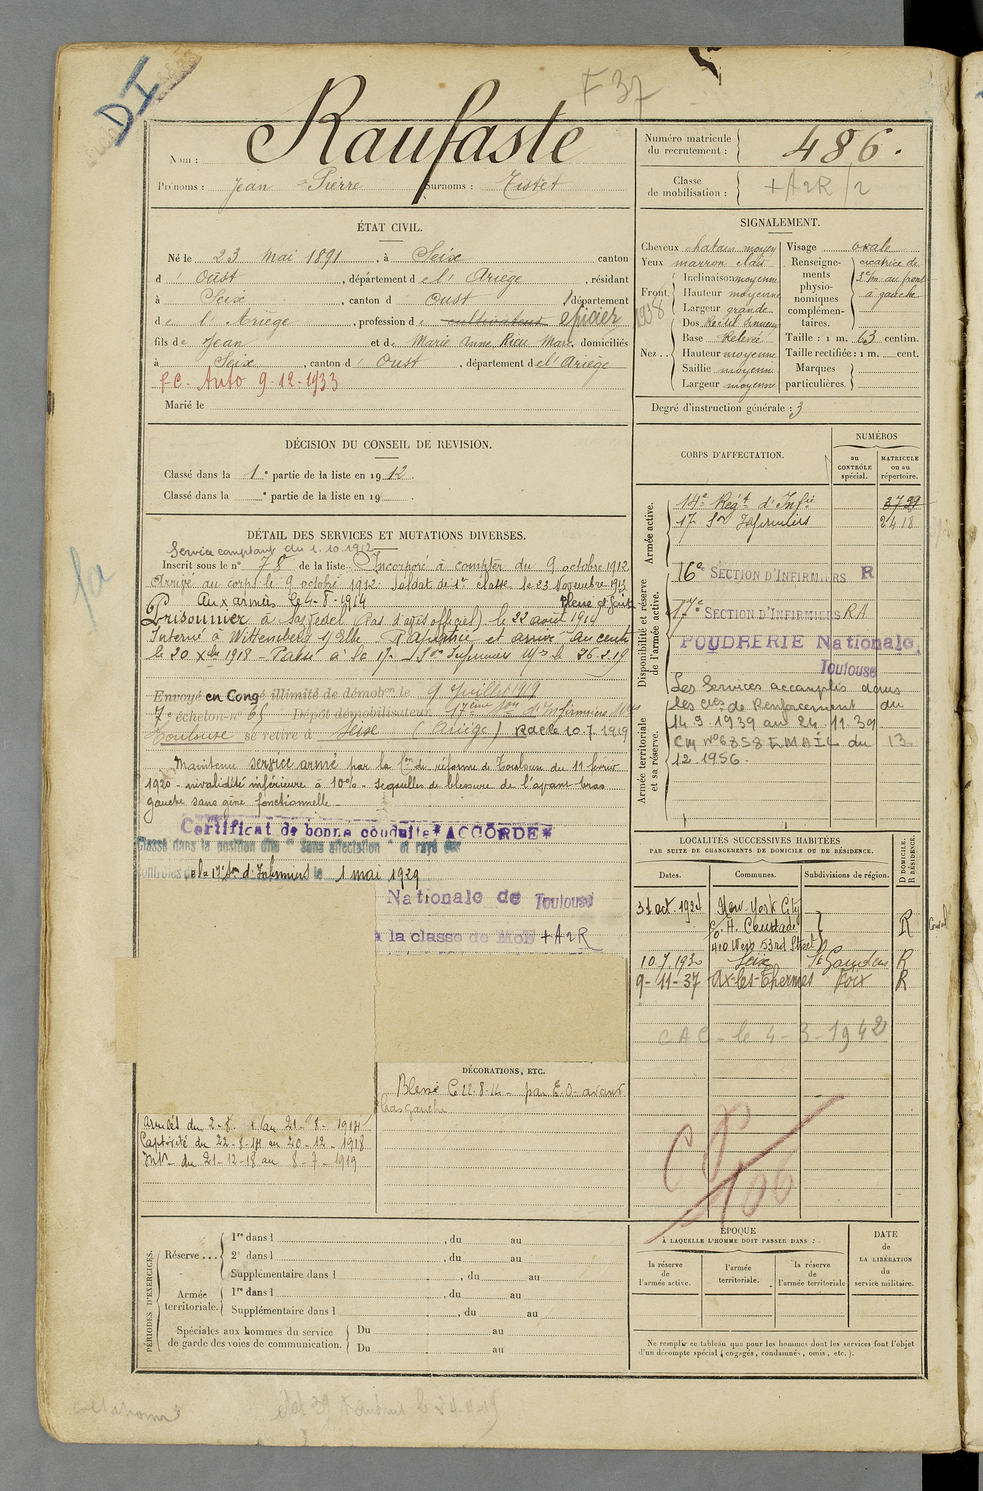 DI
F 37
Nom : Raufaste
Prénoms : Jean Pierre Surnoms : Tistet
Numéro matricule du recrutement : 486.
Classe de mobilisation : + A2R/2
ÉTAT CIVIL.
Né le 23 Mai 1891, à Seix canton
d' Oust, département de l'Ariège, résidant
à Seix, canton d' Oust, département
de l'Ariège, profession de cultivateur épicier
fils de Jean et de Marie Anne, Rieu Marc, domiciliés
à Seix, canton d' Oust, département de l'Ariège
F.C. Auto 9-12-1933
Marié le
SIGNALEMENT.
Cheveux chatain moyen
Yeux marron clair
Front. Inclinaison moyenne
Hauteur moyenne
Largeur grande
1938
Nez .. Dos Rectil. sinueux
Base Relevée
Hauteur moyenne
Saillie moyenne
Largeur moyenne
Visage ovale
Renseignements physionomiques complémentaires. cicatrice de 3 c/m au front à gauche
Taille : 1 m. 63 centim.
Taille rectifiée : 1 m. cent.
Marques particulières.
Degré d'instruction générale : 3
DÉCISION DU CONSEIL DE REVISION.
Classé dans la 1e partie de la liste en 1912.
Classé dans la e partie de la liste en 19
DÉTAIL DES SERVICES ET MUTATIONS DIVERSES.
Service comptant du 1.10.1912
Inscrit sous le n° 78 de la liste Incorporé à compter du 9 octobre 1912
Arrivé au corps le 9 octobre 1912. Soldat de 1e classe le 23 Novembre 1913
Aux armées le 4-8-1914
Prisonnier à (Pas d'avis officiel) le 22 août 1914
Interné à Wittenberg s/Elbe. Rapatrié et arrivé au centre
le 20 Xbre 1918 - Passé à la 17e Son Infirmiers Mres le 26.2.19
Envoyé en Congé illimité de démobon le 9 Juillet 1919
7e échelon n° 65 Dépôt démobilisateur 17ème Son d'Infirmiers Mres
Toulouse se retire à Seix (Ariège) RdC le 10.7.1919
Maintenu service armé par la Con de réforme de Toulouse du 11 février
1920 - invalidité inférieure à 10% - sequelles de blessure de l'avant bras
gauche sans gêne fonctionnelle -
Certificat de bonne conduite "ACCORDÉ"
Classé dans la position dite "sans affectation" et rayé des
contrôles de la 17e Son d'Infirmiers le 1 mai 1929
Nationale de Toulouse
à la classe de MOB + A2R
DÉCORATIONS, ETC.
Blessé le 22-8-14 - par E.O. avant
bras gauche
Armées du 2-8- au 21-8-1914
Captivité du 22-8-14 au 20-12-1918
Int. du 21-12-18 au 8-7-1919
CORPS D'AFFECTATION.
NUMÉROS
au CONTRÔLE spécial.
MATRICULE ou au répertoire.
Armée active.
14e Régt d'Infie 3729
17 Son Infirmiers 2418
Disponibilité et réserve de l'armée active.
16e SECTION D'INFIRMIERS R
17e SECTION D'INFIRMIERS RA
POUDRERIE Nationale,
Toulouse
Armée territoriale et sa réserve.
Les Services accomplis dans
les cies de Renforcement du
14 9 1939 au 24 11.39
CM N° 6858 EMAIL du 13.
12.1956.
LOCALITÉS SUCCESSIVES HABITÉES
PAR SUITE DE CHANGEMENTS DE DOMICILE OU DE RÉSIDENCE.
Dates. Communes. Subdivisions de région. D DOMICILE. R RÉSIDENCE.
31 oct. 1924 New-York City
c/o H. Coustade R
410 West 53rd Street
10.7.1930 Seix St Gaudens R
9-11-37 Ax-les-Thermes Foix R
CAC - le 4-3-1942
PÉRIODES D'EXERCICES.
Réserve ... 1re dans l , du au
2e dans l , du au
Supplémentaire dans l , du au
Armée territoriale. 1re dans l , du au
Supplémentaire dans l , du au
Spéciales aux hommes du service de garde des voies de communication. Du au
Du au
ÉPOQUE
A LAQUELLE L'HOMME DOIT PASSER DANS :
la réserve de l'armée active.
l'armée territoriale.
la réserve de l'armée territoriale
DATE de LA LIBÉRATION du service militaire.
Ne remplir ce tableau que pour les hommes dont les services font l'objet
d'un décompte spécial (engagés, condamnés, omis, etc.).